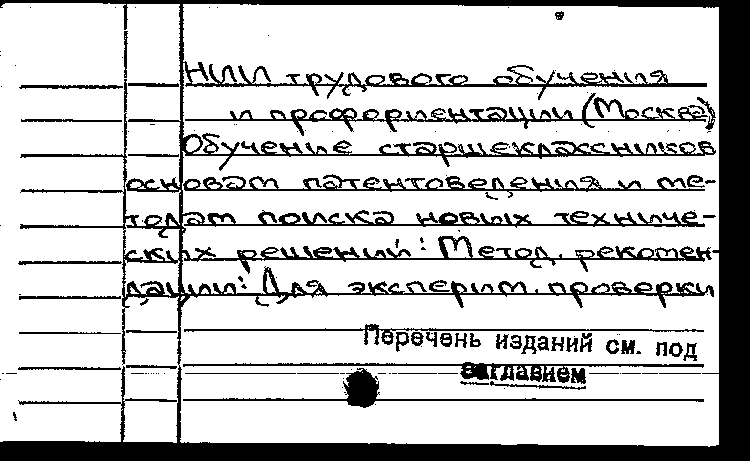 НИИ трудового обучения
и профориентации (Москва)
Обучение старшеклассников
основам патентоведения и ме-
тодам поиска новых техниче-
ских решений: Метод. рекомен-
дации: Для эксперим. проверки
Перечень изданий см. под
заглавием